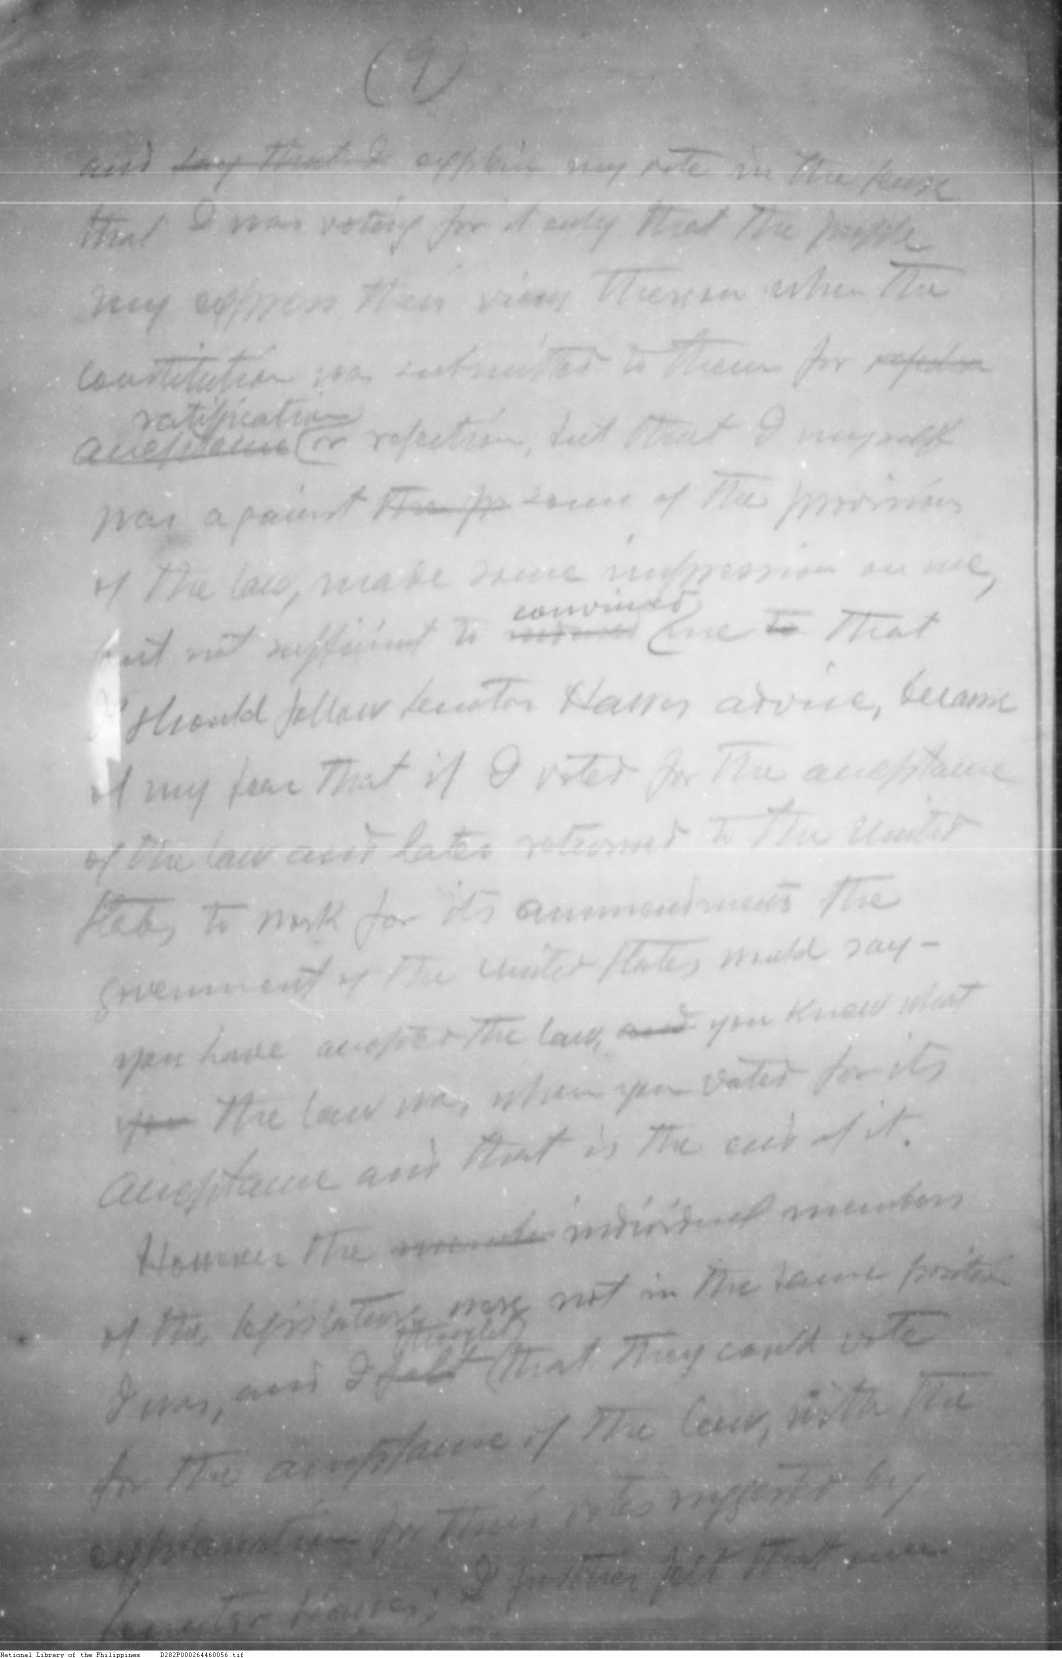 (9)
and say that I explain my vote in the sense
that I was voting for it only that the people
may express their views thereon when the
constitution was submitted to them for
ratification
acceptance or rejection, but that I myself
was against the pr some of the provisions
of the law, made some impression on me,
but not sufficient to
convinced
me to that
I should follow Senator Hawes advice, because
of my fear that if I voted for the acceptance
of the law and later returned to the United
States to work for its ammendments the
government of the United States would say –
you have accepted the law, and you knew what
you the law was when you voted for its
acceptance and that is the end of it.
However the individual members
of the legislature were not in the same position
thought
I was, and I felt that they could vote
for the acceptance of the law, with the
explanation for their votes suggested by
Senator Hawes; I further felt that